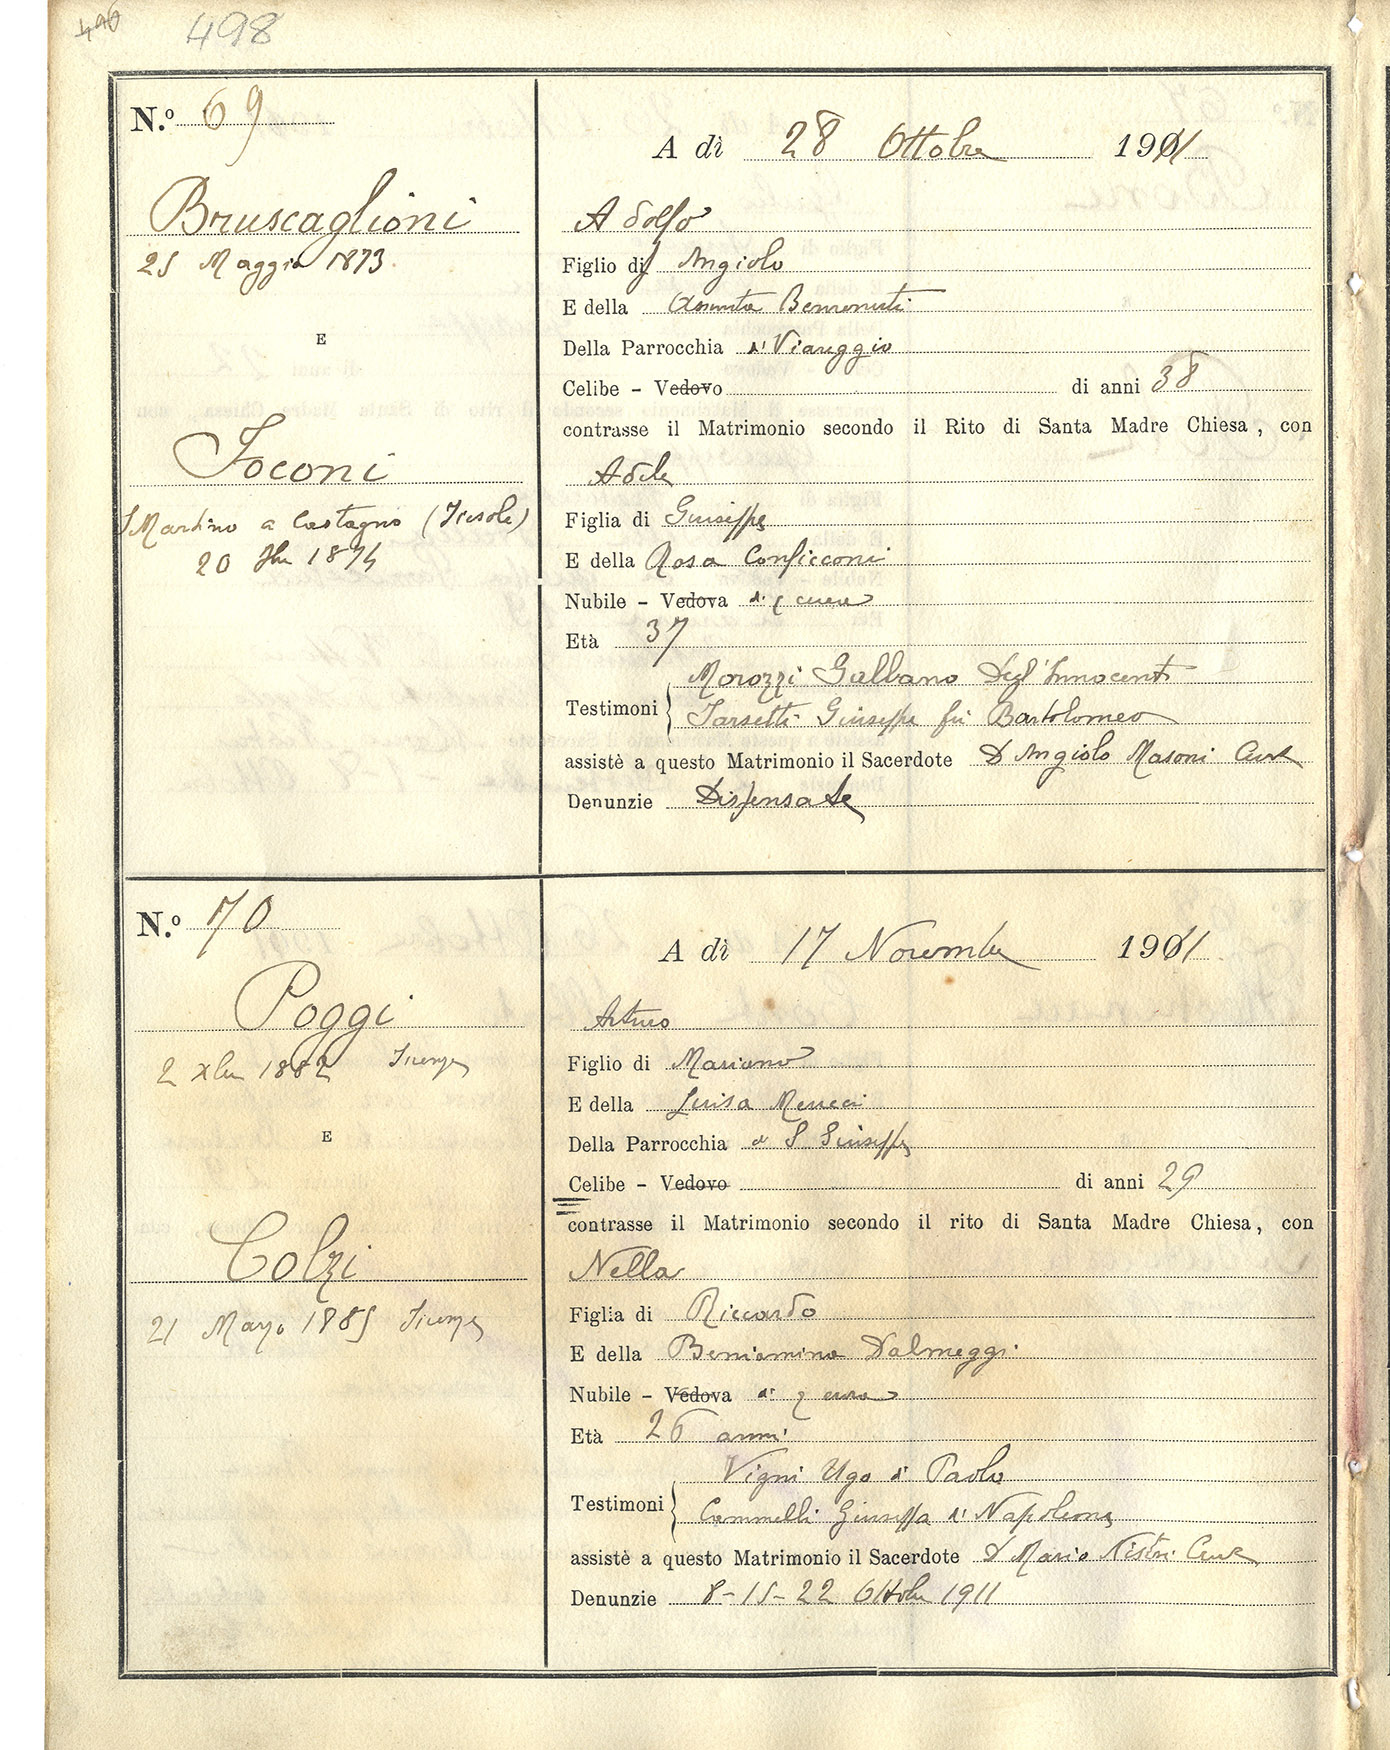 498
N.º 69
A dì 28 Ottobre 1911
Bruscaglioni
25 Maggio 1873.
E
Foconi
S Martino a Castagno (Fiesole)
20 1874
Adolfo
Figlio di Angiolo
E della Assunta Benvenuti
Della Parrocchia di Viareggio
Celibe - Vedovo di anni 38
contrasse il Matrimonio secondo il Rito di Santa Madre Chiesa, con
Adele
Figlia di Giuseppe
E della Rosa Conficconi
Nubile - Vedova di q cura
Età 37
Testimoni
Morozzi Galbano Degl'Innocenti
Tarsetti Giuseppe fu Bartolomeo
assistè a questo Matrimonio il Sacerdote D Angiolo Masoni Cur
Denunzie Dispensate
N.º 70
A dì 17 Novembre 1911
Poggi
2 Xbre 1882 Firenze
E
Colzi
21 Marzo 1885 Firenze
Arturo
Figlio di Mariano
E della Luisa Meucci
Della Parrocchia di S Giuseppe
Celibe - Vedovo di anni 29
contrasse il Matrimonio secondo il rito di Santa Madre Chiesa, con
Nella
Figlia di Riccardo
E della Beniamina Dalmeggi
Nubile - Vedova di q cura
Età 26 anni
Testimoni
Vigni Ugo di Paolo
Cammelli Giuseppe di Napoleone
assistè a questo Matrimonio il Sacerdote D Mario Nistri Cur
Denunzie 8-15-22 Ottobre 1911